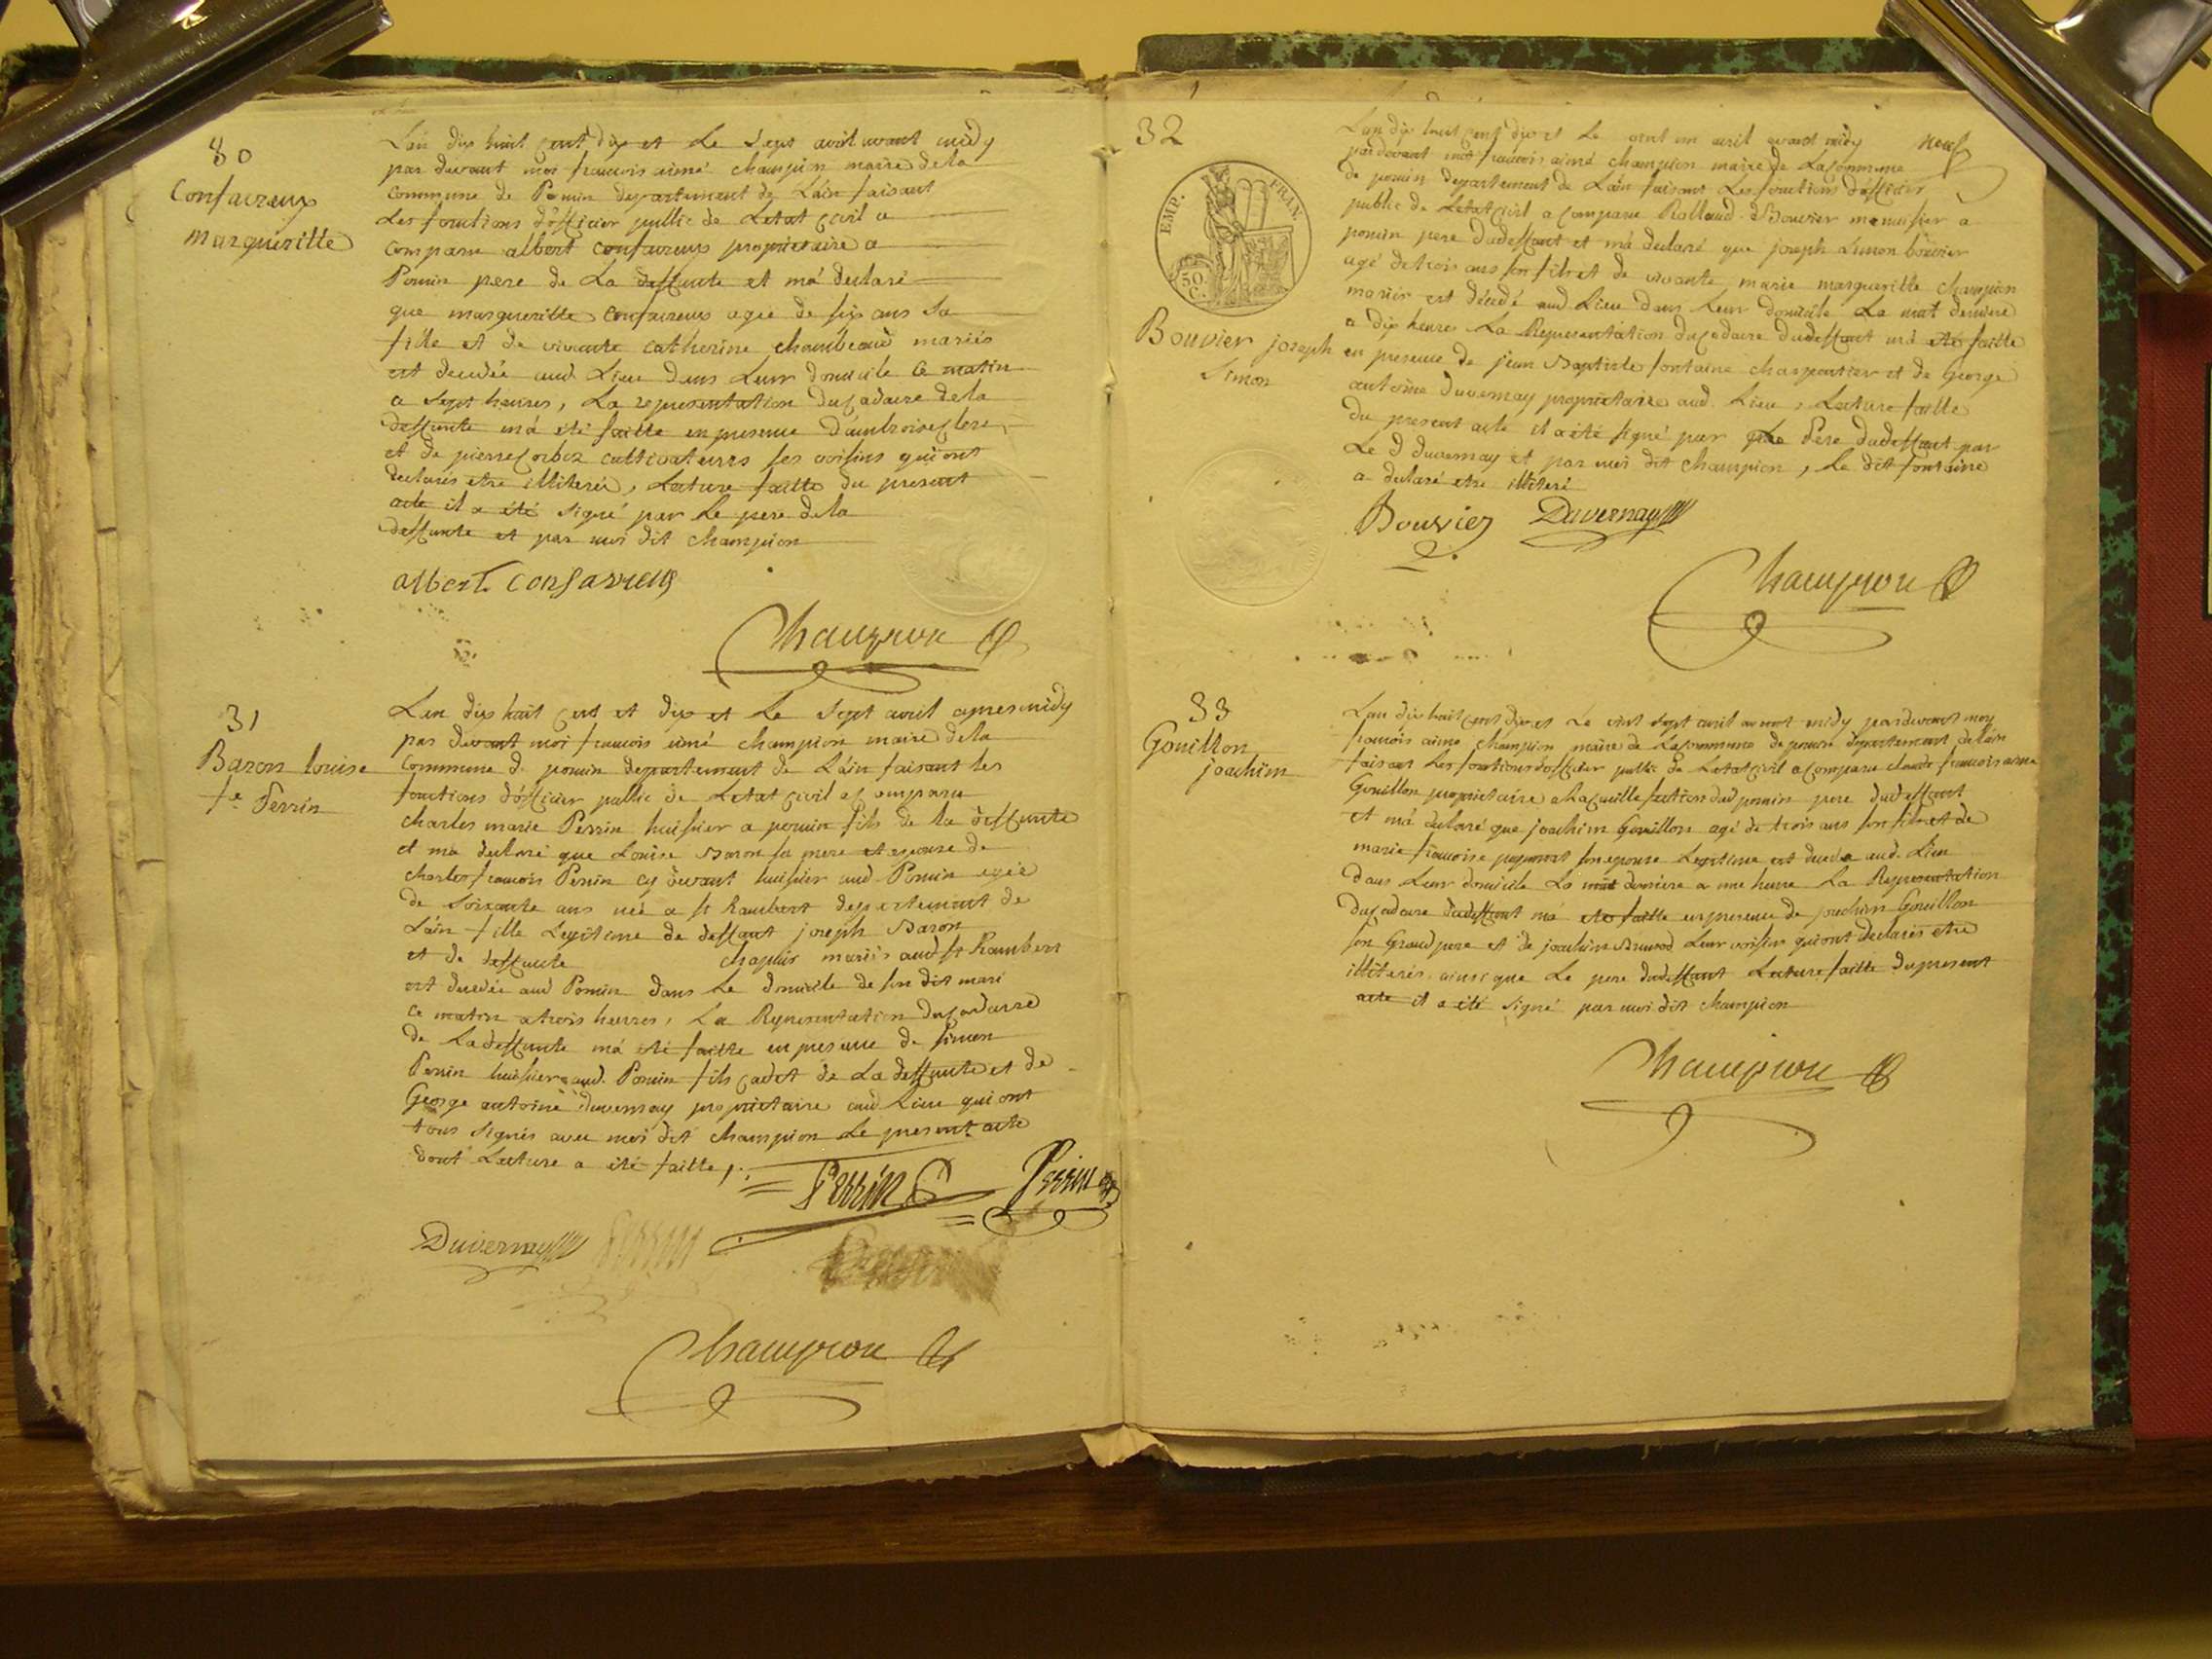 30
Confavreux
margueritte
L'an dix huit cent dix et Le sept avril avant midy
par devant moi francois aimé champion maire de la
commune de Poncin departement de L'ain faisant
Les fonctions d'officier public de Letat civil a
comparu albert confavreux proprietaire a
Poncin pere de La deffunte et m'a declaré
que margueritte confavreux agée de six ans sa
fille et de vivante catherine chambeaud mariés
est decedée aud Lieu dans Leur domicile ce matin
a sept heures, La representation du cadavre de la
deffunte m'a été faitte en presence
et de pierre cultivateurs ses voisins qui ont
declarés etre illiterés, Lecture faitte du present
acte il a été signé par Le pere de la
deffunte et par moi dit champion
albert confavreux
Champion
31
Baron louise
fe Perrin
L'an dix huit cent et dix et Le sept avril apres midy
par devant moi francois aimé champion maire de la
commune de poncin departement de L'ain faisant les
fonctions d'officier public de Letat civil a comparu
charles marie Perrin huissier a poncin fils de la deffunte
et m'a declaré que Louise Baron sa mere et epouse de
charles francois Perrin cy devant huissier aud Poncin agée
de soixante ans née a st Rambert departement de
L'ain fille Legitime de deffunt joseph Baron
et de deffunte chapuis mariés aud st Rambert
est decedée aud Poncin dans Le domicile de son dit mari
ce matin a trois heures, La Representation du cadavre
de La deffunte m'a été faitte en presence de simon
Perrin huissier aud. Poncin fils cadet de La deffunte et de
George antoine Duvernay proprietaire aud Lieu qui ont
tous signés avec moi dit champion Le present acte
dont Lecture a été faitte,
Perrin Perrin
Duvernay
Champion
32
EMP. FRAN.
50 C.
Bouvier joseph
Simon
L'an dix huit cent dix et Le vint un avril avant midy neuf
par devant moi francois aimé champion maire de La commune
de poncin departement de L'ain faisant Les fonctions d'officier
public de Letat civil a comparu Rolland Bouvier menuisier à
poncin pere dudeffunt et m'a declaré que joseph simon bouvier
agé de trois ans son fils et de vivante marie margueritte champion
mariés est décedé aud Lieu dans Leur domicile La nuit derniere
a dix heures La Representation du cadavre dudeffunt m'a été faitte
en presence de jean Baptiste fontaine charpentier et de George
antoine duvernay proprietaire aud. Lieu, Lecture faitte
du present acte il a été signé par Le Pere dudeffunt par
Le d duvernay et par moi dit champion, Le dit fontaine
a declaré etre illiteré
Bouvier Duvernay
Champion
33
Gouillon
joachim
L'an dix huit cent dix et Le vint sept avril avant midy par devant moy
francois aimé champion maire de La commune de poncin departement de L'ain
faisant Les fonctions d'officier public de Letat civil a comparu claude francois aimé
Gouillon proprietaire a section dud poncin pere dudeffunt
et m'a declaré que joachim Gouillon agé de trois ans son fils et de
marie francoise son epouse Legitime est decedé aud. Lieu
dans Leur domicile La nuit derniere a une heure La Representation
du cadavre dudeffunt m'a été faitte en presence de joachim Gouillon
son Grand pere et de joachim Leur voisin qui ont declarés etre
illiterés, ainsi que Le pere dudeffunt Lecture faitte du present
acte il a été signé par moi dit champion
Champion